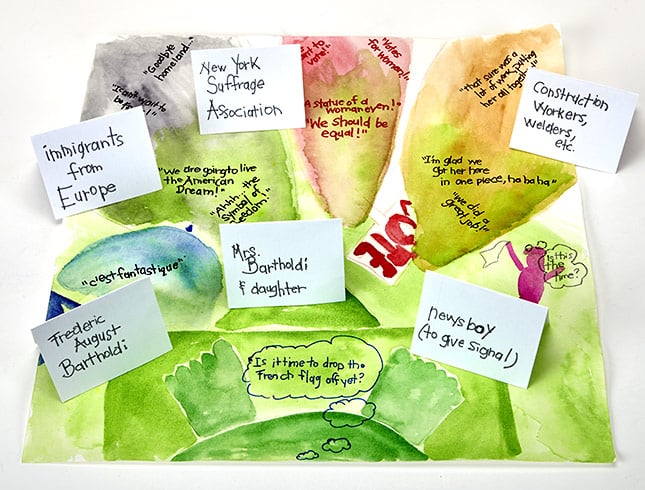 "Goodbye
homeland..."
"I can't wait to
be free!"
New York
Suffrage
Association
to
vote!"
"Votes
for women!"
"A statue of a
woman even!"
"We should be
equal!"
"that sure was a
lot of work putting
her all together!"
Construction
Workers,
welders,
etc.
immigrants
from
Europe
"We are going to live
the American
Dream!"
"Ahhh... the
symbol of
freedom!"
"I'm glad we
got her here
in one piece, ha ha ha"
"We did a
great job!"
VOTE
"c'est fantastique"
Mrs.
Bartholdi
& daughter
Is this
the
time?
Frederic
August
Bartholdi
newsboy
(to give signal)
Is it time to drop the
French flag off yet?